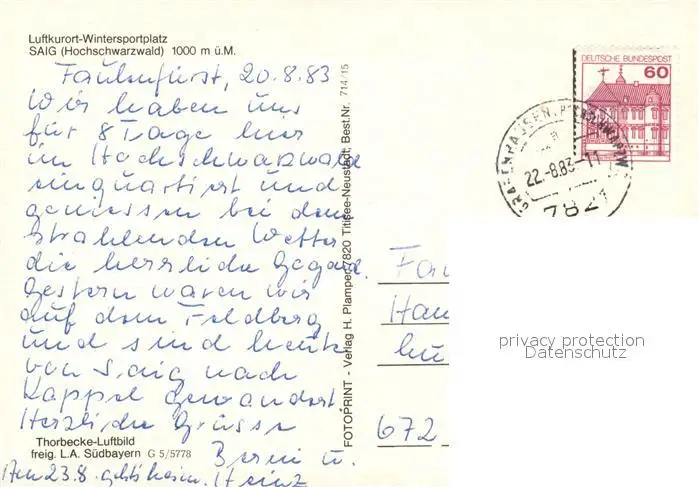 Luftkurort-Wintersportplatz
SAIG (Hochschwarzwald) 1000 m ü.M.
Faulenfürst, 20.8.83
Wir haben uns
für 8 Tage hier
im Hochschwarzwald
einquartiert und
geniessen bei dem
strahlenden Wetter
die herrliche Gegend.
Gestern waren wir
auf dem Feldberg
und sind heute
von Saig nach
Kappel gewandert.
Herzliche Grüsse
Thorbecke-Luftbild
freig. L.A. Südbayern G 5/5778
u.
Am 23.8. geht's heim. Heinz
FOTOPRINT - Verlag H. Plamper 7820 Titisee-Neustadt, Best.Nr. 714/15
DEUTSCHE BUNDESPOST
60
22.-8.83-11
7821
Fa
Hau
672
privacy protection
Datenschutz